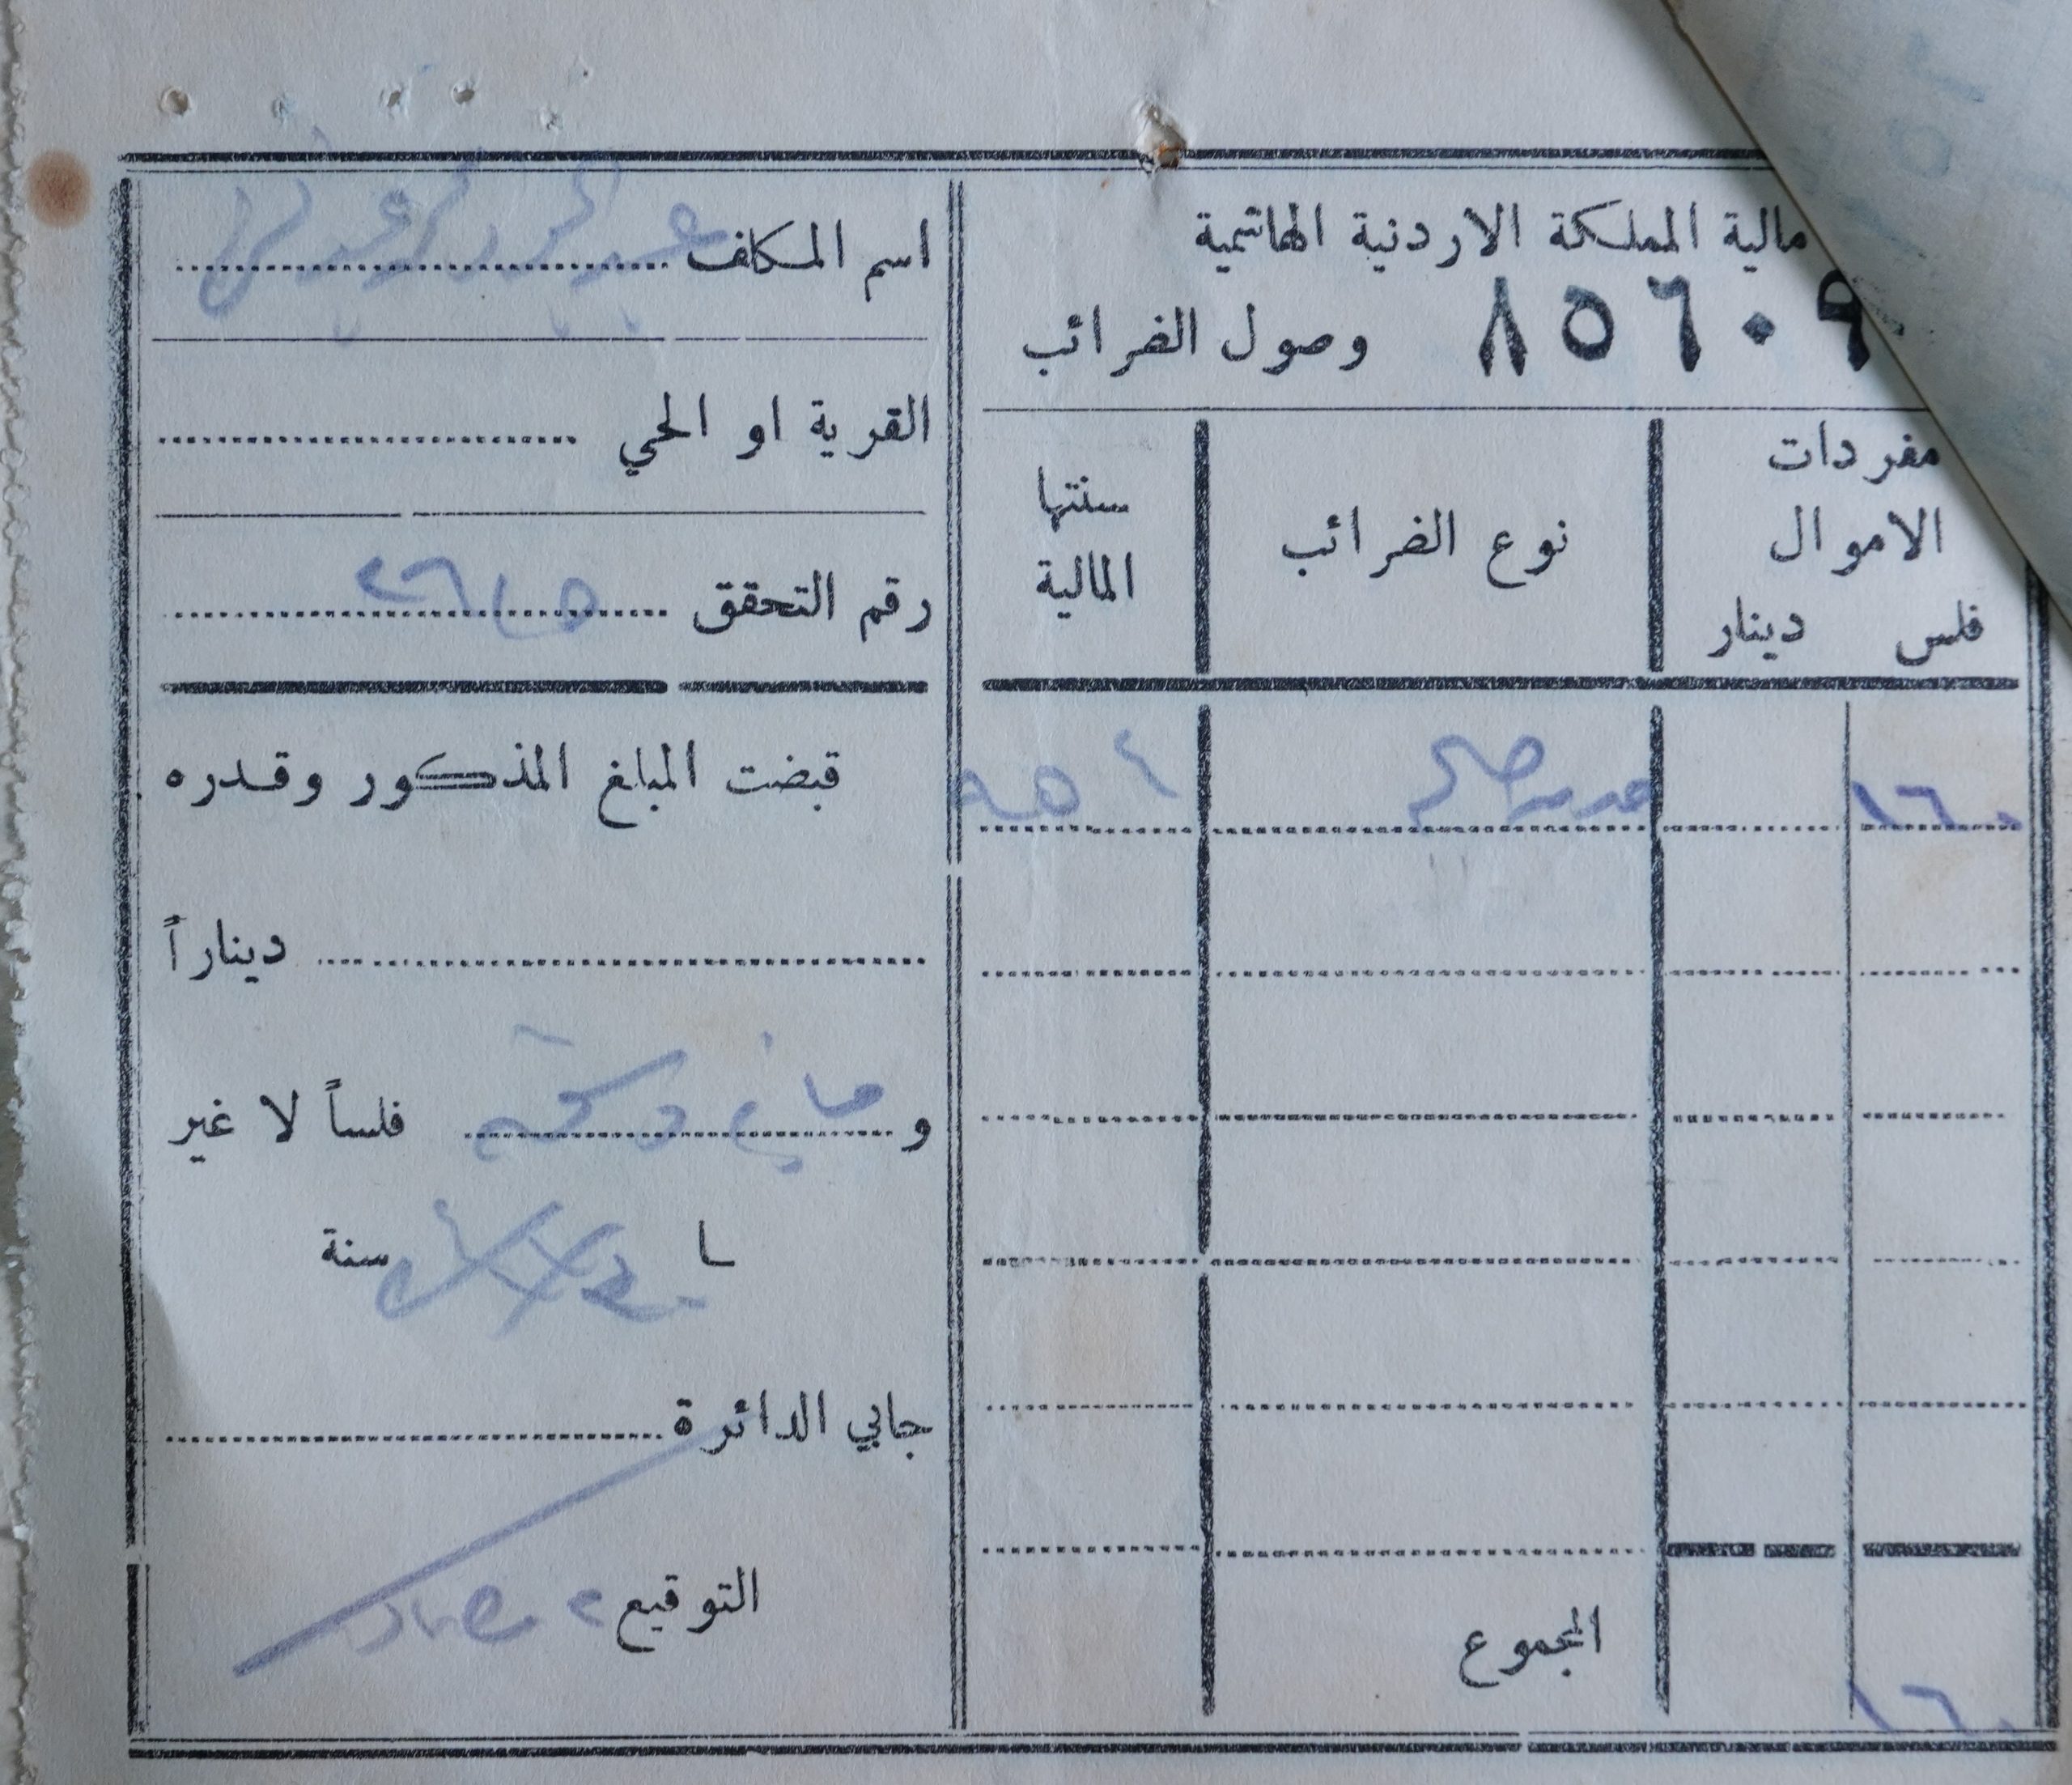 مالية المملكة الاردنية الهاشمية
٨٥٦٠٩ وصول الضرائب
مفردات الاموال
فلس دينار
نوع الضرائب
سنتها المالية
١٦٠
المجموع
١٦٠
اسم المكلف
القرية او الحي
رقم التحقق
قبضت المبلغ المذكور وقدره
ديناراً
و فلساً لا غير
سنة
جابي الدائرة
التوقيع